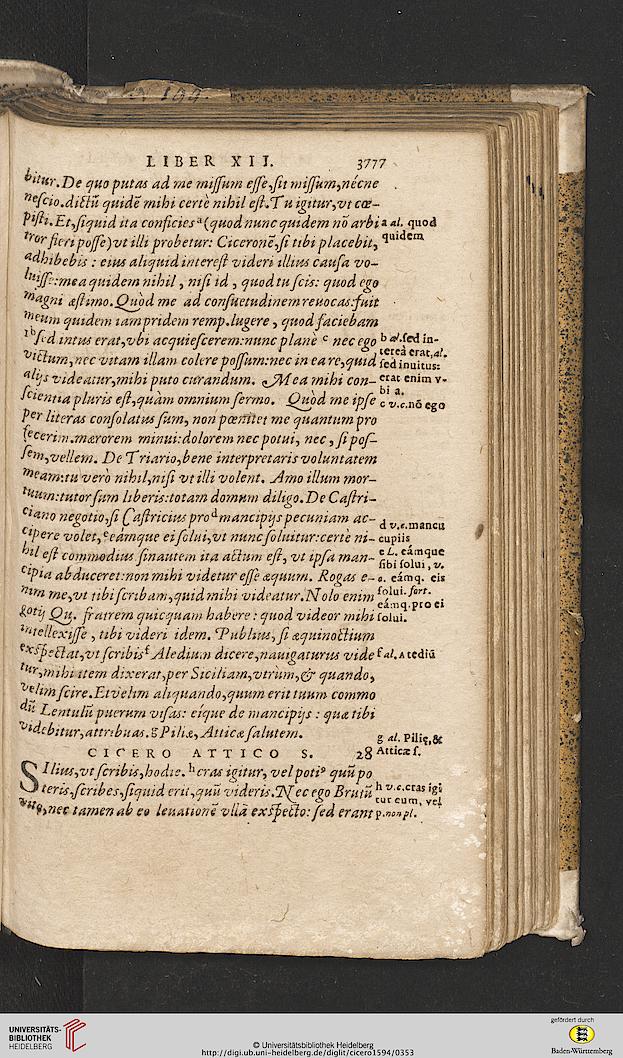 LIBER XII. 3777
bitur. De quo putas ad me missum esse, sit missum, nécne
nescio. dictū quidē mihi certè nihil est. Tu igitur, vt cœ-
pisti. Et, siquid ita conficies ᵃ (quod nunc quidem nō arbi
tror fieri posse) vt illi probetur: Ciceronē, si tibi placebit,
adhibebis: eius aliquid interest videri illius causa vo-
luisse: mea quidem nihil, nisi id, quod tu scis: quod ego
magni æstimo. Quòd me ad consuetudinem reuocas: fuit
meum quidem iampridem remp. lugere, quod faciebam
ᵇ sed intus erat, vbi acquiescerem: nunc planè ᶜ nec ego
victum, nec vitam illam colere possum: nec in ea re, quid
alijs videatur, mihi puto curandum. Mea mihi con-
scientia pluris est, quàm omnium sermo. Quòd me ipse
per literas consolatus sum, non pœnitet me quantum pro
fecerim. mærorem minui: dolorem nec potui, nec, si pos-
sem, vellem. De Triario, bene interpretaris voluntatem
meam: tu verò nihil, nisi vt illi volent. Amo illum mor-
tuum: tutor sum liberis: totam domum diligo. De Castri-
ciano negotio, si Castricius pro ᵈ mancipijs pecuniam ac-
cipere volet, ᵉ eámque ei solui, vt nunc soluitur: certè ni-
hil est commodius sinautem ita actum est, vt ipsa man-
cipia abduceret: non mihi videtur esse æquum. Rogas e-
nim me, vt tibi scribam, quid mihi videatur. Nolo enim
gotij Qu. fratrem quicquam habere: quod videor mihi
intellexisse, tibi videri idem. Publius, si æquinoctium
exspectat, vt scribis ᶠ Aledium dicere, nauigaturus vide
tur, mihi item dixerat, per Siciliam, vtrùm, & quando,
velim scire. Et velim aliquando, quum erit tuum commo
dū Lentulū puerum visas: eíque de mancipijs: quæ tibi
videbitur, attribuas. ᵍ Piliæ, Atticæ salutem.
CICERO ATTICO S. 28
SIlius, vt scribis, hodie. ʰ cras igitur, vel potiꝰ quū po
teris, scribes, siquid erit, quū videris. Nec ego Brutū
vito, nec tamen ab eo leuationē vllā exspecto: sed erant
a al. quod
quidem
b al. sed in-
tereà erat, al.
sed inuitus:
erat enim v-
bi a.
c v.c. nō ego
d v.c. mancu
cupiis
e L. eámque
sibi solui, v.
c. eámq. eis
solui. fort.
eámq. pro ei
solui.
f al. Atediū
g al. Pilię, &
Atticæ s.
h v.c. cras igi
tur cum, vel
p. non pl.
UNIVERSITÄTS-
BIBLIOTHEK
HEIDELBERG
© Universitätsbibliothek Heidelberg
http://digi.ub.uni-heidelberg.de/diglit/cicero1594/0353
gefördert durch
Baden-Württemberg